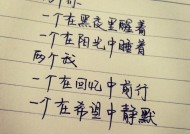 一个在黑夜里醒着
一个在阳光中睡着
两个我
一个在回忆中前行
一个在希望中静默